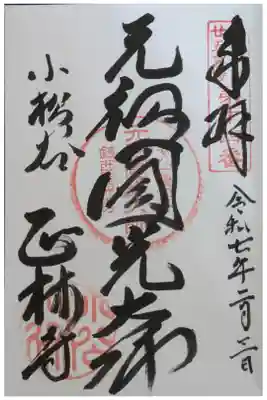 奉拝
令和七年二月三日
元祖圓光大師
小松谷
正林寺